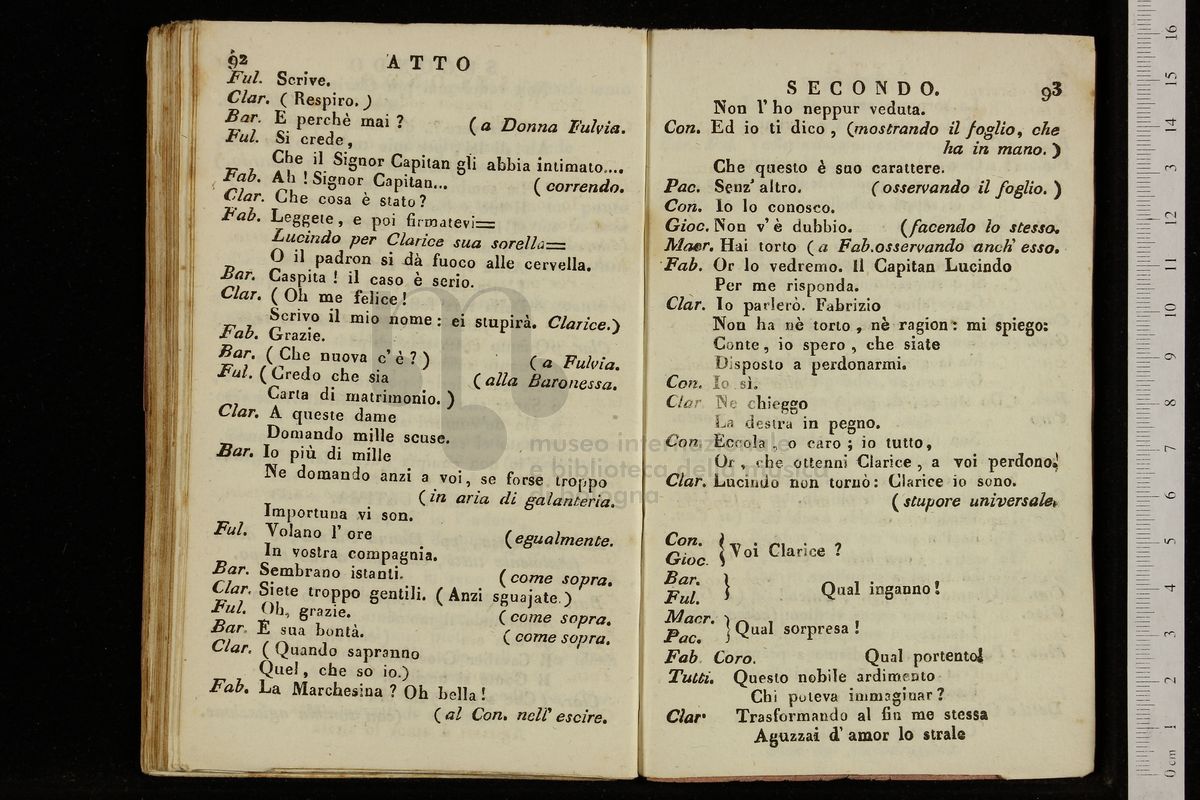 92 ATTO
Ful. Scrive.
Clar. ( Respiro. )
Bar. E perchè mai ? ( a Donna Fulvia.
Ful. Si crede,
Che il Signor Capitan gli abbia intimato....
Fab. Ah ! Signor Capitan... ( correndo.
Clar. Che cosa è stato ?
Fab. Leggete , e poi firmatevi=
Lucindo per Clarice sua sorella=
O il padron si dà fuoco alle cervella.
Bar. Caspita ! il caso è serio.
Clar. ( Oh me felice !
Scrivo il mio nome : ei stupirà. Clarice.)
Fab. Grazie.
Bar. ( Che nuova c' è ? ) ( a Fulvia.
Ful. ( Credo che sia ( alla Baronessa.
Carta di matrimonio. )
Clar. A queste dame
Domando mille scuse.
Bar. Io più di mille
Ne domando anzi a voi, se forse troppo
( in aria di galanteria.
Importuna vi son.
Ful. Volano l' ore ( egualmente.
In vostra compagnia.
Bar. Sembrano istanti. ( come sopra.
Clar. Siete troppo gentili. ( Anzi sguajate.)
Ful. Oh, grazie. ( come sopra.
Bar. È sua bontà. ( come sopra.
Clar. ( Quando sapranno
Quel , che so io.)
Fab. La Marchesina ? Oh bella !
( al Con. nell' escire.
SECONDO. 93
Non l' ho neppur veduta.
Con. Ed io ti dico , (mostrando il foglio, che
ha in mano. )
Che questo è suo carattere.
Pac. Senz' altro. ( osservando il foglio. )
Con. Io lo conosco.
Gioc. Non v' è dubbio. ( facendo lo stesso.
Macr. Hai torto ( a Fab. osservando anch' esso.
Fab. Or lo vedremo. Il Capitan Lucindo
Per me risponda.
Clar. Io parlerò. Fabrizio
Non ha nè torto , nè ragion : mi spiego:
Conte , io spero , che siate
Disposto a perdonarmi.
Con. Io sì.
Clar Ne chieggo
La destra in pegno.
Con. Eccola , o caro ; io tutto,
Or , che ottenni Clarice , a voi perdono.
Clar. Lucindo non tornò : Clarice io sono.
( stupore universale.
Con. }
Gioc. } Voi Clarice ?
Bar. }
Ful. } Qual inganno !
Macr. }
Pac. } Qual sorpresa !
Fab. Coro. Qual portento!
Tutti. Questo nobile ardimento
Chi poteva immaginar ?
Clar. Trasformando al fin me stessa
Aguzzai d' amor lo strale
museo internazionale
e biblioteca della musica
bologna
0 cm 1 2 3 4 5 6 7 8 9 10 11 12 13 14 15 16